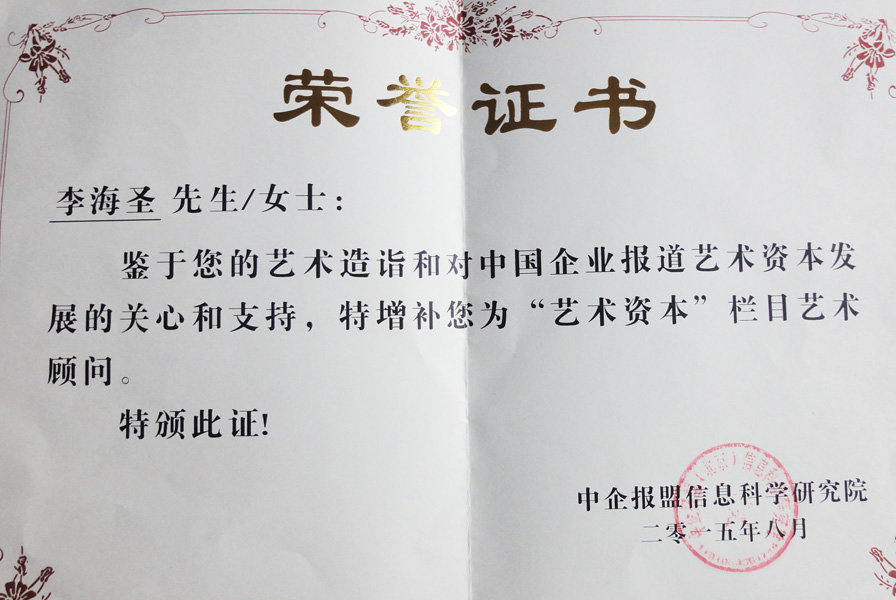 荣誉证书
李海圣 先生/女士：
鉴于您的艺术造诣和对中国企业报道艺术资本发
展的关心和支持，特增补您为“艺术资本”栏目艺术
顾问。
特颁此证!
中企报盟信息科学研究院
二零一五年八月